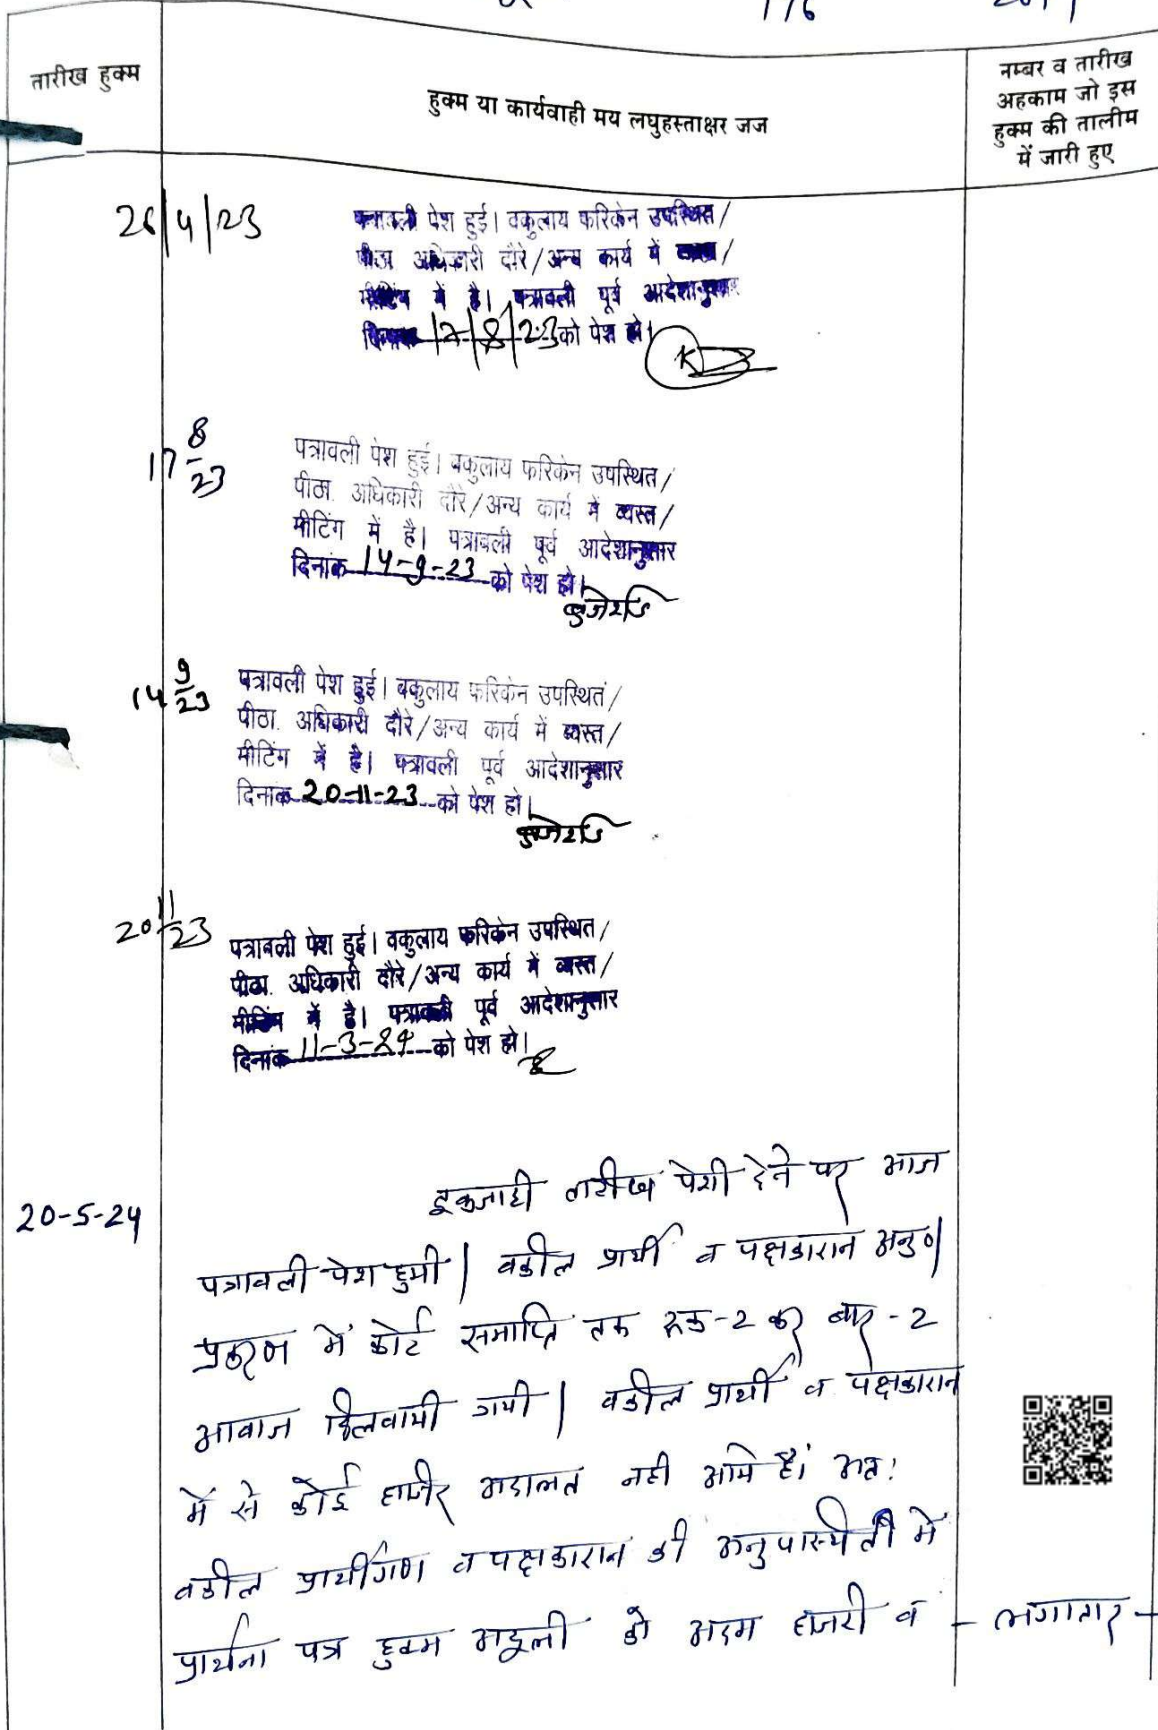 176
तारीख हुक्म
हुक्म या कार्यवाही मय लघुहस्ताक्षर जज
नम्बर व तारीख
अहकाम जो इस
हुक्म की तालीम
में जारी हुए
26/4/23
पत्रावली पेश हुई। वकुलाय फरिकेन उपस्थित/
पीठा. अधिकारी दौरे/अन्य कार्य में व्यस्त/
मीटिंग में है। पत्रावली पूर्व आदेशानुसार
दिनांक 17/8/23 को पेश हो।
17 8/23
पत्रावली पेश हुई। वकुलाय फरिकेन उपस्थित/
पीठा. अधिकारी दौरे/अन्य कार्य में व्यस्त/
मीटिंग में है। पत्रावली पूर्व आदेशानुसार
दिनांक 14-9-23 को पेश हो।
14 9/23
पत्रावली पेश हुई। वकुलाय फरिकेन उपस्थित/
पीठा. अधिकारी दौरे/अन्य कार्य में व्यस्त/
मीटिंग में है। पत्रावली पूर्व आदेशानुसार
दिनांक 20-11-23 को पेश हो।
20 11/23
पत्रावली पेश हुई। वकुलाय फरिकेन उपस्थित/
पीठा. अधिकारी दौरे/अन्य कार्य में व्यस्त/
मीटिंग में है। पत्रावली पूर्व आदेशानुसार
दिनांक 11-3-24 को पेश हो।
20-5-24
इकजाही तारीख पेशी देने पर आज
पत्रावली पेश हुयी। वकील प्रार्थी व पक्षकारान अनु०।
प्रकरण में कोर्ट समाप्ति तक रूक-2 कर बार-2
आवाज दिलवायी गयी। वकील प्रार्थी व पक्षकारान
में से कोई हाजिर अदालत नही आये है। अत:
वकील प्रार्थीगण व पक्षकारान की अनुपस्थिती में
प्रार्थना पत्र हुक्म अदूली को अदम हाजरी व - लगातार -